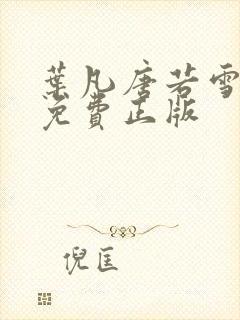 葉凡唐若雪
免費正版
倪匡